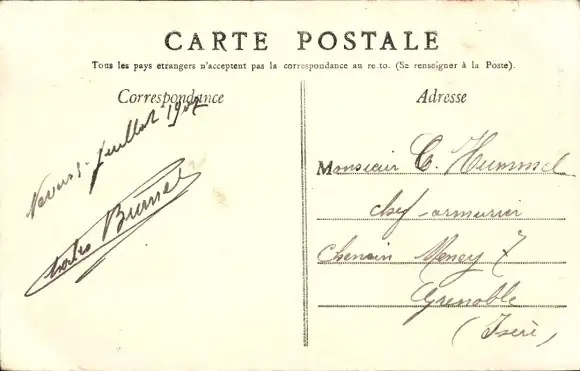 CARTE POSTALE
Tous les pays étrangers n'acceptent pas la correspondance au recto. (Se renseigner à la Poste).
Correspondance
Adresse
Juillet 1907
Monsieur C. Hummel
chef-armurier
Chemin Meney 7
Grenoble
(Isère)